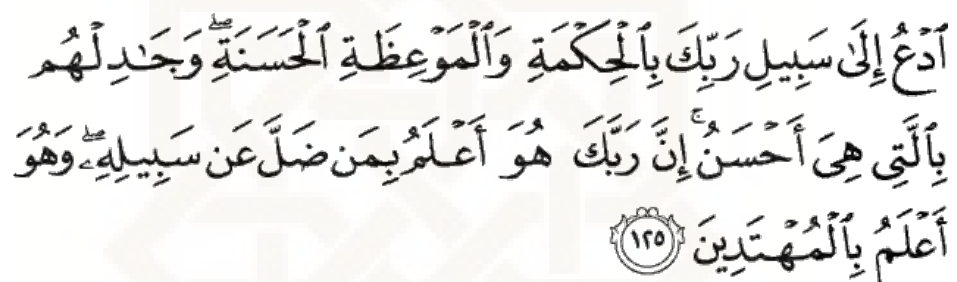 ٱدۡعُ إِلَىٰ سَبِيلِ رَبِّكَ بِٱلۡحِكۡمَةِ وَٱلۡمَوۡعِظَةِ ٱلۡحَسَنَةِۖ وَجَٰدِلۡهُم
بِٱلَّتِي هِيَ أَحۡسَنُۚ إِنَّ رَبَّكَ هُوَ أَعۡلَمُ بِمَن ضَلَّ عَن سَبِيلِهِۦۖ وَهُوَ
أَعۡلَمُ بِٱلۡمُهۡتَدِينَ ١٢٥